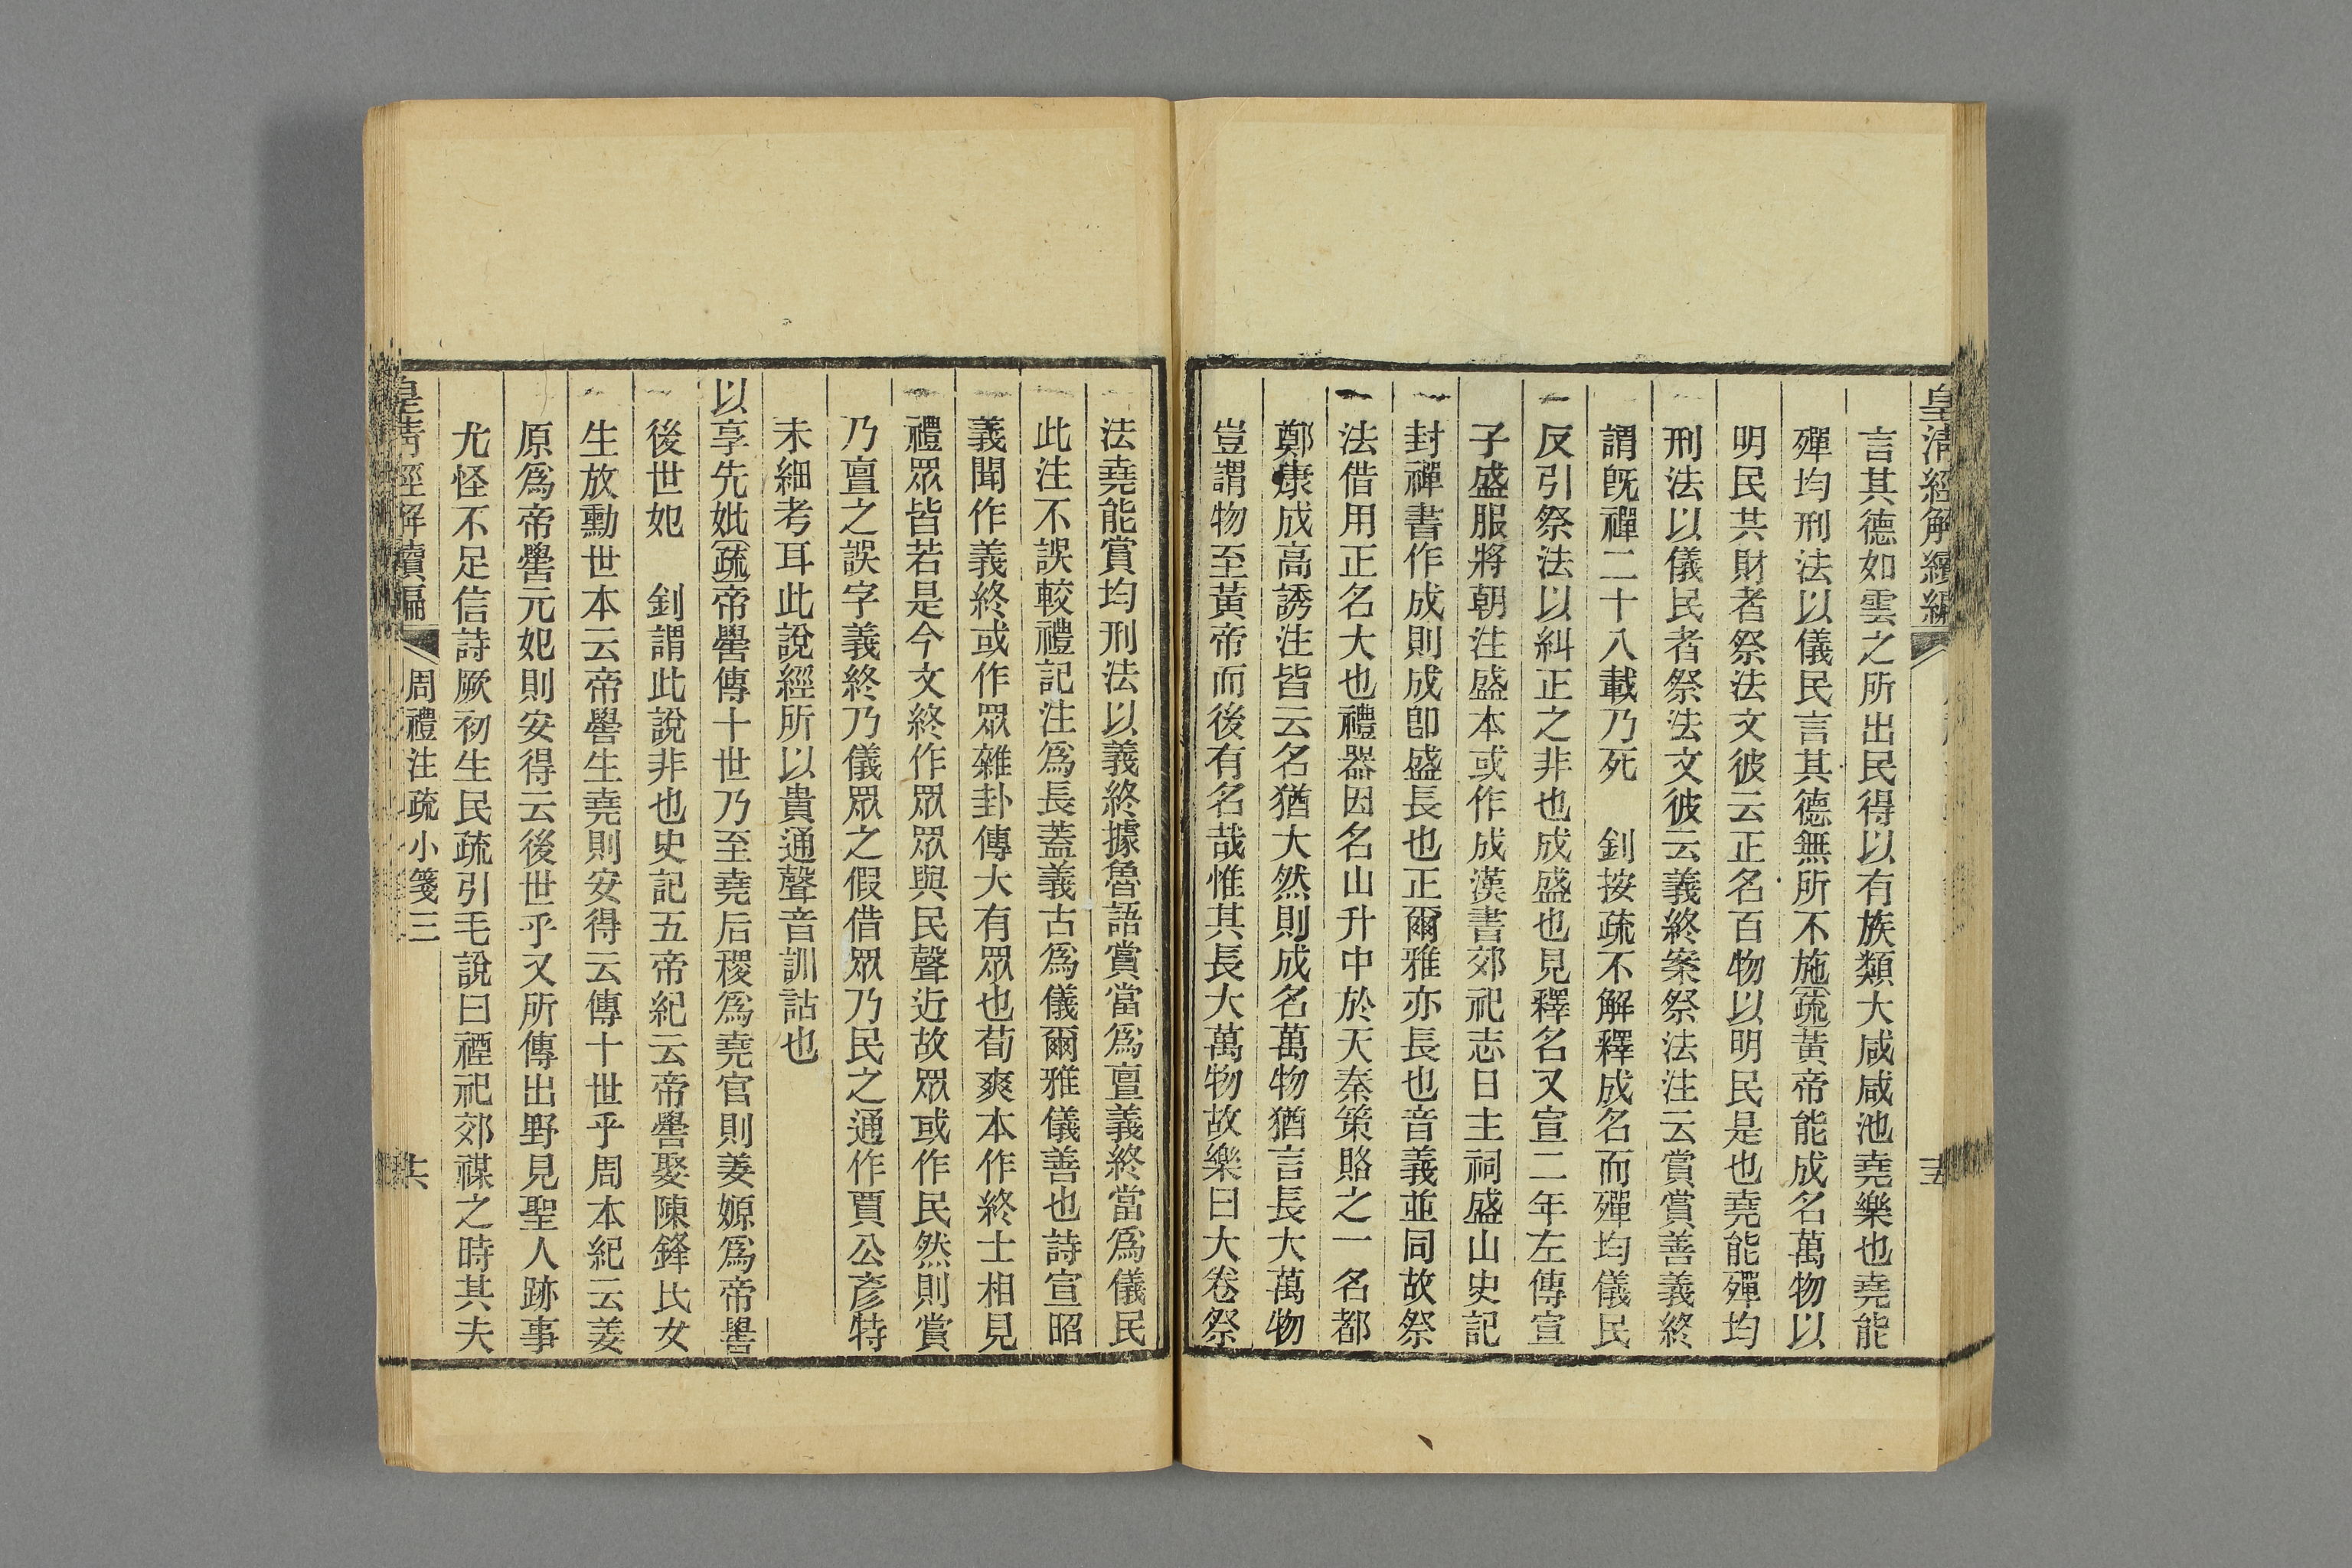 皇清經解續編
言其德如雲之所出民得以有族類大咸咸池堯樂也堯能
殫均刑法以儀民言其德無所不施疏黃帝能成名萬物以
明民共財者祭法文彼云正名百物以明民是也堯能殫均
刑法以儀民者祭法文彼云義終案祭法注云賞賞善義終
謂既禪二十八載乃死　釗按疏不解釋成名而殫均儀民
反引祭法以糾正之非也成盛也見釋名又宣二年左傳宣
子盛服將朝注盛本或作成漢書郊祀志日主祠盛山史記
封禪書作成則成卽盛長也正爾雅亦長也音義並同故祭
法借用正名大也禮器因名山升中於天秦策賂之一名都
鄭康成高誘注皆云名猶大然則成名萬物猶言長大萬物
豈謂物至黃帝而後有名哉惟其長大萬物故樂曰大卷祭
法堯能賞均刑法以義終據魯語賞當爲亶義終當爲儀民
此注不誤較禮記注爲長蓋義古爲儀爾雅儀善也詩宣昭
義聞作義終或作眾雜卦傳大有眾也荀爽本作終士相見
禮眾皆若是今文終作眾眾與民聲近故眾或作民然則賞
乃亶之誤字義終乃儀眾之假借眾乃民之通作賈公彥特
未細考耳此說經所以貴通聲音訓詁也
以享先妣疏帝嚳傳十世乃至堯后稷爲堯官則姜嫄爲帝嚳
後世妃　釗謂此說非也史記五帝紀云帝嚳娶陳鋒氏女
生放勳世本云帝嚳生堯則安得云傳十世乎周本紀云姜
原爲帝嚳元妃則安得云後世乎又所傳出野見聖人跡事
尤怪不足信詩厥初生民疏引毛說曰禋祀郊禖之時其夫
皇清經解續編　周禮注疏小箋三